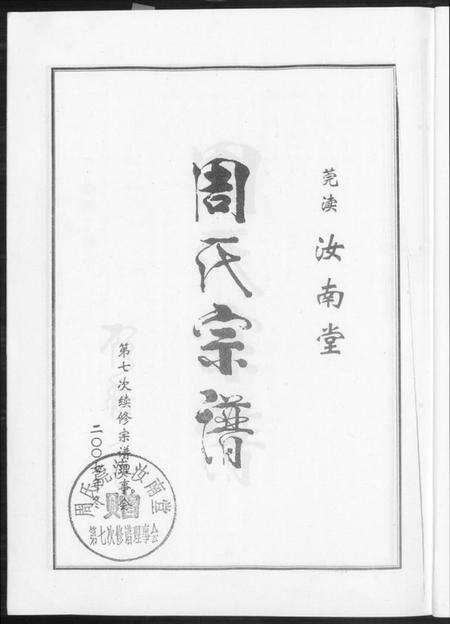 莞渎 汝南堂
周氏宗谱
第七次续修宗谱理事会
二〇〇七年冬
周氏莞渎汝南堂
赠
第七次修谱理事会